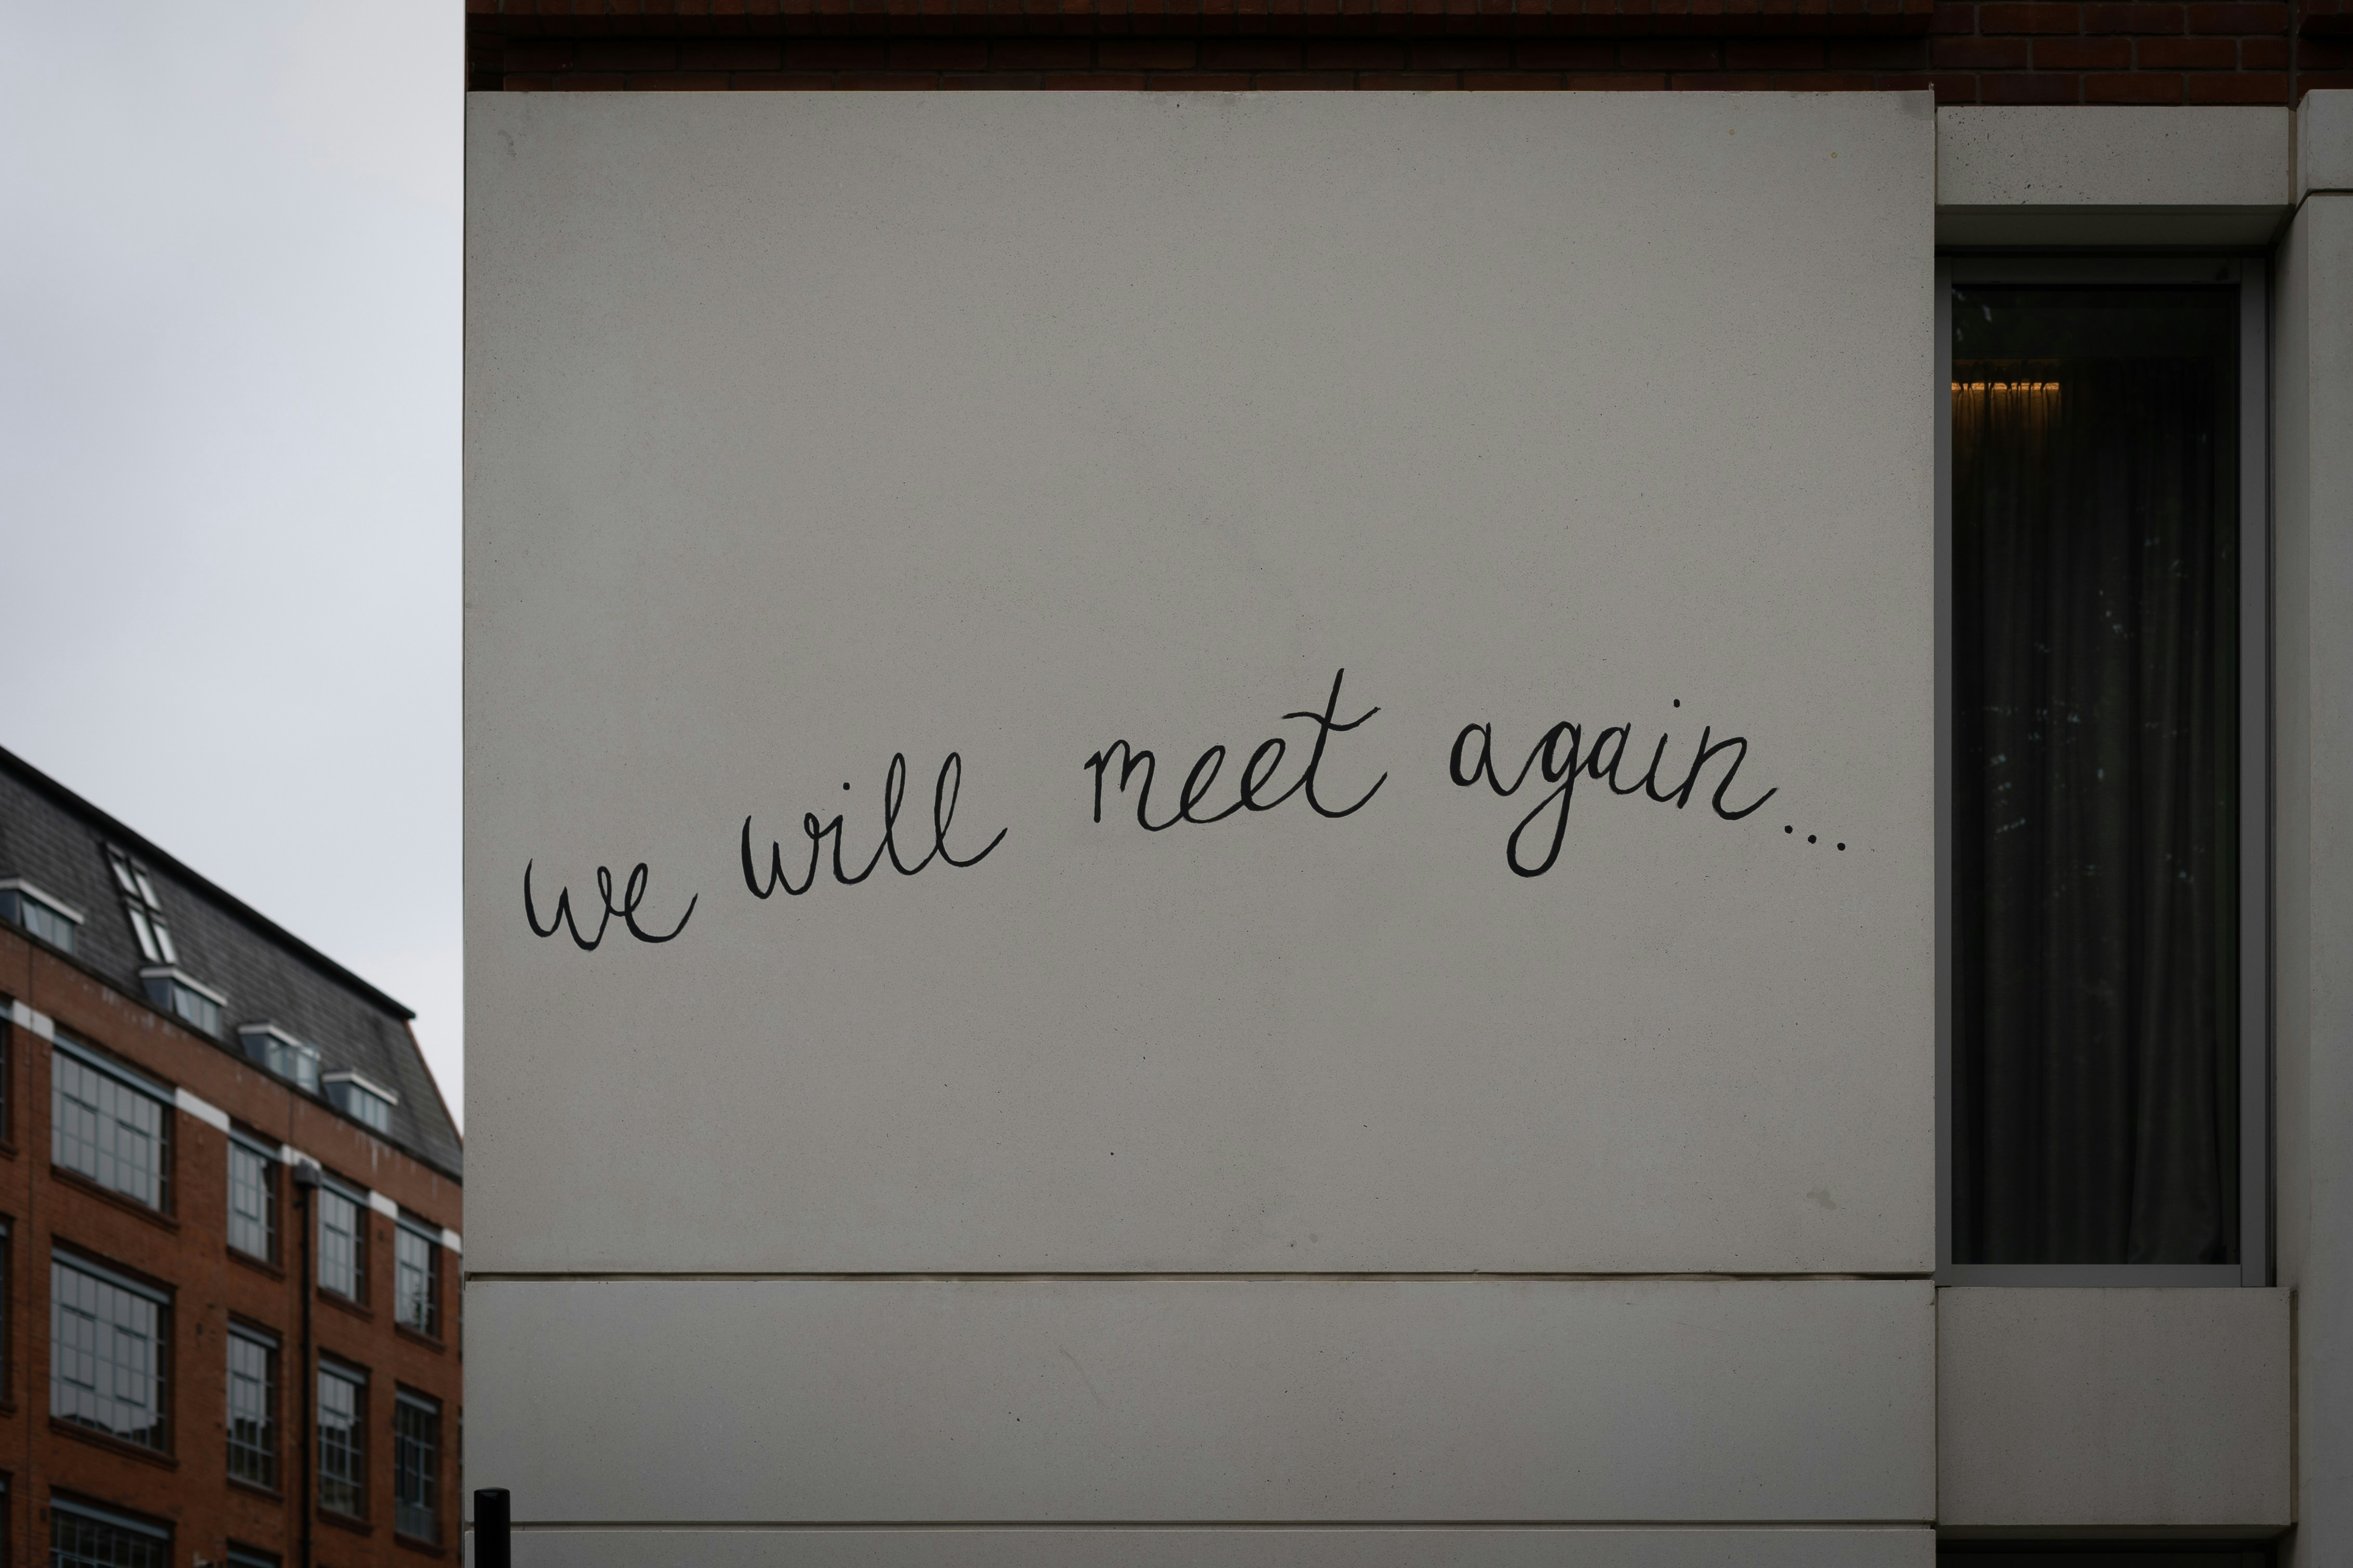 we will meet again...